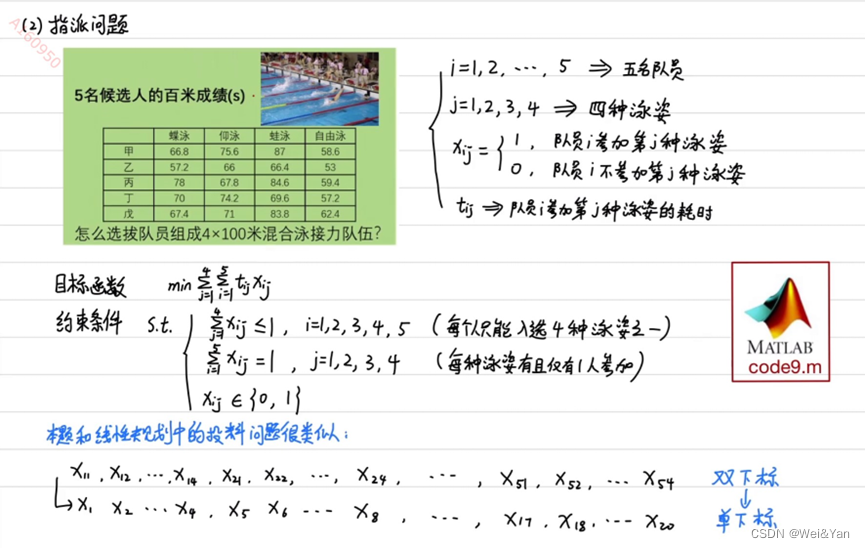 (2) 指派问题
A160950
5名候选人的百米成绩(s)
蝶泳 仰泳 蛙泳 自由泳
甲 66.8 75.6 87 58.6
乙 57.2 66 66.4 53
丙 78 67.8 84.6 59.4
丁 70 74.2 69.6 57.2
戊 67.4 71 83.8 62.4
怎么选拔队员组成4×100米混合泳接力队伍?
i=1,2,⋯,5 ⇒ 五名队员
j=1,2,3,4 ⇒ 四种泳姿
xij = { 1, 队员i参加第j种泳姿
0, 队员i不参加第j种泳姿
tij ⇒ 队员i参加第j种泳姿的耗时
目标函数 min ∑(j=1→4) ∑(i=1→5) tij xij
约束条件 s.t. { ∑(j=1→4) xij ≤ 1, i=1,2,3,4,5 (每个人只能入选4种泳姿之一)
∑(i=1→5) xij = 1, j=1,2,3,4 (每种泳姿有且仅有1人参加)
xij ∈ {0, 1}
MATLAB
code9.m
本题和线性规划中的投料问题很类似:
x11, x12, ⋯, x14, x21, x22, ⋯, x24, ⋯, x51, x52, ⋯ x54 双下标
↓
→ x1 x2 ⋯ x4 x5 x6 ⋯ x8, ⋯, x17, x18, ⋯ x20 单下标
CSDN @Wei&Yan